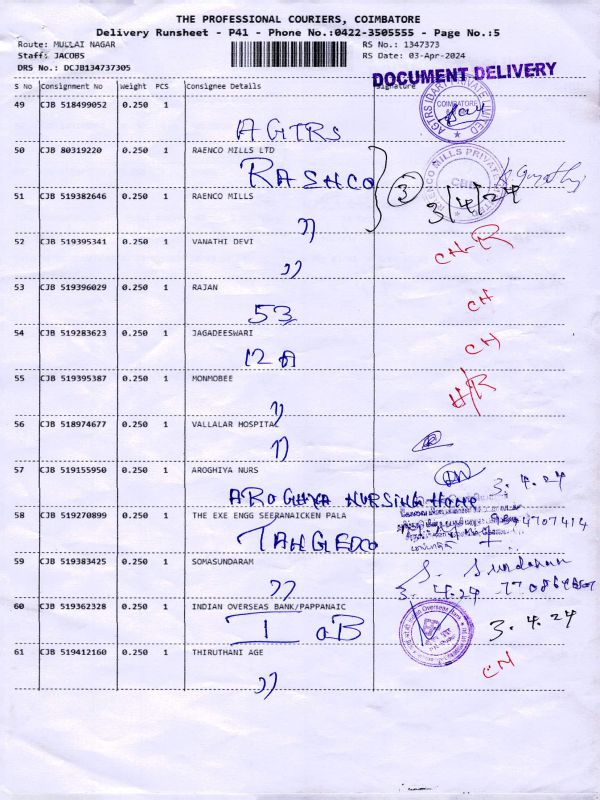 THE PROFESSIONAL COURIERS, COIMBATORE
Delivery Runsheet - P41 - Phone No.:0422-3505555 - Page No.:5
Route: MULLAI NAGAR RS No.: 1347373
Staff: JACOBS RS Date: 03-Apr-2024
DRS No.: DCJB134737305
DOCUMENT DELIVERY
S No Consignment No Weight PCS Consignee Details Signature
49 CJB 518499052 0.250 1
AGTRS
50 CJB 80319220 0.250 1 RAENCO MILLS LTD
RASHCO 3 3/4/24
51 CJB 519382646 0.250 1 RAENCO MILLS
”
52 CJB 519395341 0.250 1 VANATHI DEVI
”
53 CJB 519396029 0.250 1 RAJAN CN
53
54 CJB 519283623 0.250 1 JAGADEESWARI CN
12 A
55 CJB 519395387 0.250 1 MONMOBEE
”
56 CJB 518974677 0.250 1 VALLALAR HOSPITAL
”
57 CJB 519155950 0.250 1 AROGHIYA NURS 3.4.24
AROGHYA NURSING HOME
58 CJB 519270899 0.250 1 THE EXE ENGG SEERANAICKEN PALA
TANGEDCO
59 CJB 519383425 0.250 1 SOMASUNDARAM
” 3.4.24
60 CJB 519362328 0.250 1 INDIAN OVERSEAS BANK/PAPPANAIC
I OB 3.4.24
61 CJB 519412160 0.250 1 THIRUTHANI AGE CN
”